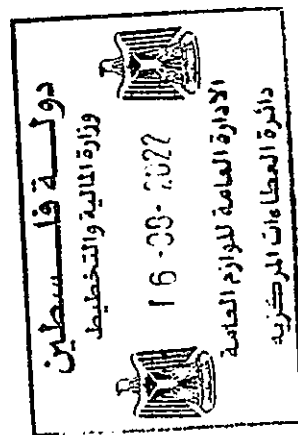 دولـــة فلـــسطين
وزارة المالية والتخطيط
16-08-2022
الادارة العامة للوازم العامة
دائرة العطاءات المركزية